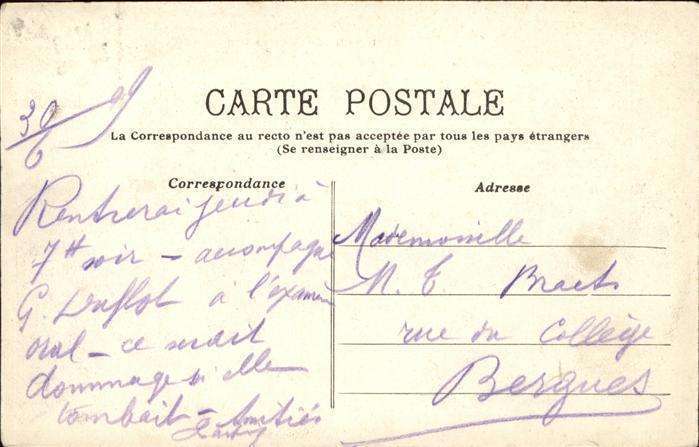 30/6 09
CARTE POSTALE
La Correspondance au recto n'est pas acceptée par tous les pays étrangers
(Se renseigner à la Poste)
Correspondance
Rentrerai jeudi à
7H soir - accompagne
G. Duflot à l'examen
oral - ce serait
dommage si elle
tombait - Amitiés
Adresse
Mademoiselle
M. T. Braets
rue du Collège
Bergues